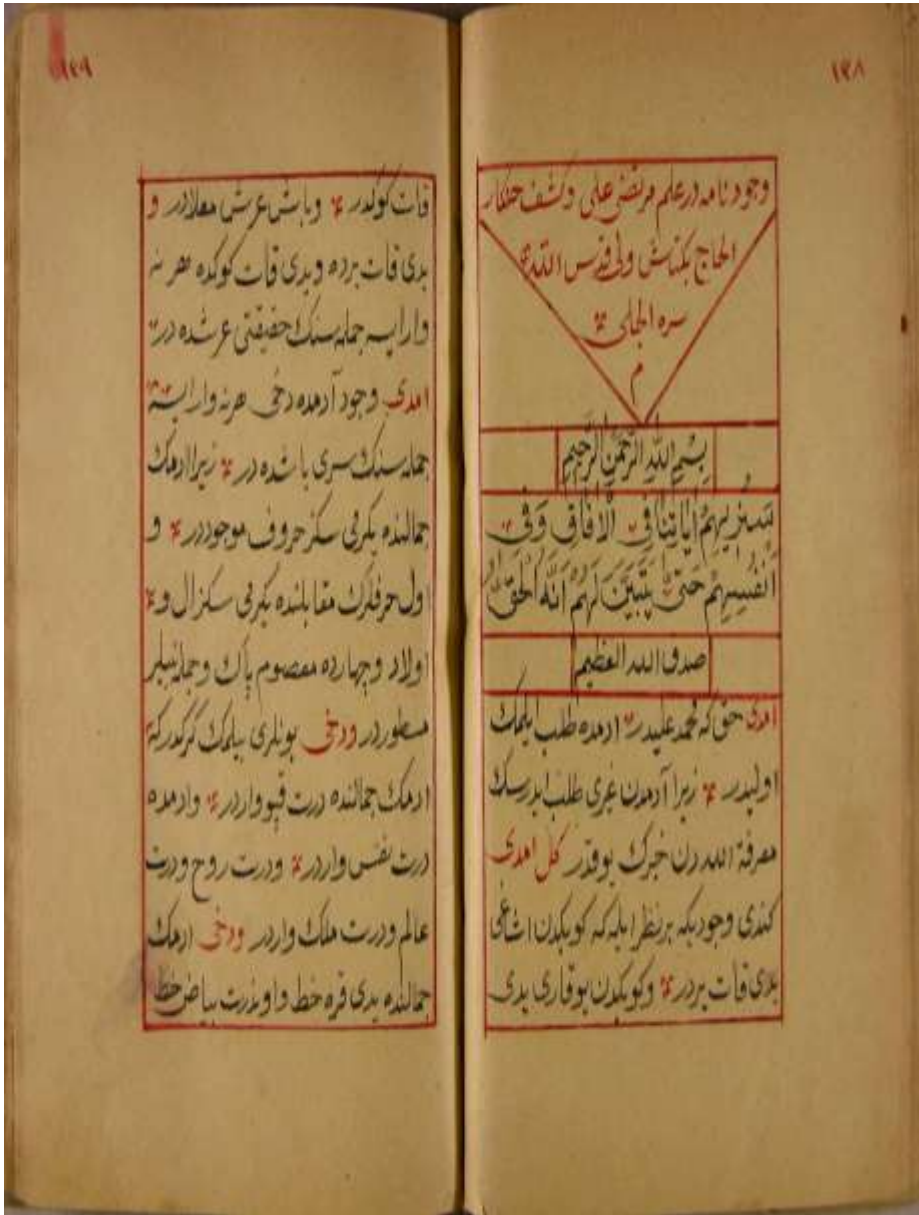 ١٣٨
وجودنامه در علم مرتضى على وكشف خنكار
الحاج بكتاش ولى قدس الله
سره الجلى
م
بِسْمِ اللّٰهِ الرَّحْمٰنِ الرَّحِيمِ
سَنُرِيهِمْ اٰيَاتِنَا فِى الْاٰفَاقِ وَفِى
اَنْفُسِهِمْ حَتّٰى يَتَبَيَّنَ لَهُمْ اَنَّهُ الْحَقُّ
صدق الله العظيم
امدى حق كه محمد عليدر ادمده طلب ايلمك
اوليدر زيرا آدمدن غيرى طلب ايدرسك
معرفة الله دن خبرك يوقدر كل امدى
كندى وجوديكه بر نظر ايله كه كوبكدن اشاغى
يدى قات يردر وكوبكدن يوقارى يدى
١٣٩
قات كوكدر وباش عرش معلادر و
يدى قات يرده ويدى قات كوكده هر نه
وارايسه جمله سنك حقيقتى عرشده در
امدى وجود آدمده دخى هرنه وارايسه
جمله سنك سرى باشده در زيرا ادمك
جمالنده يكرمى سكز حروف موجوددر و
اول حرفلرك مقابلنده يكرمى سكز ال و
اولاد وچهارده معصوم پاك وجمله نبيلر
مسطوردر ودخى بونلرى بيلمك كركدركه
ادمك جمالنده درت قپو واردر وادمده
درت نفس واردر ودرت روح ودرت
عالم ودرت ملك واردر ودخى ادمك
جمالنده يدى قره خط واون درت بياض خط